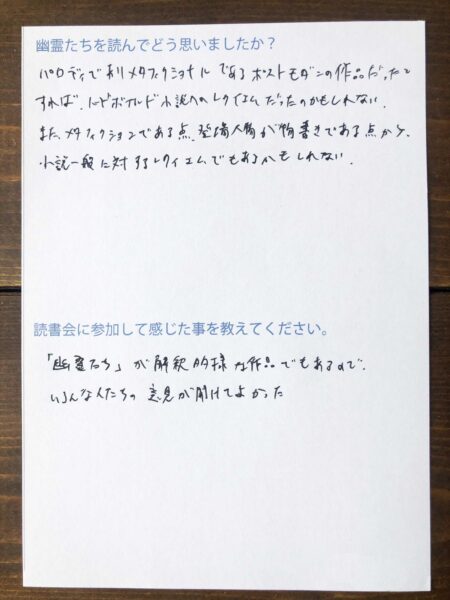 幽霊たちを読んでどう思いましたか？
パロディで有りメタフィクショナルであるポストモダンの作品だったと
すれば、ハードボイルド小説へのレクイエムだったのかもしれない。
また、メタフィクションである点、登場人物が物書きである点から、
小説一般に対するレクイエムでもあるかもしれない。
読書会に参加して感じた事を教えてください。
「幽霊たち」が解釈 多様な作品でもあるので、
いろんな人たちの意見が聞けてよかった